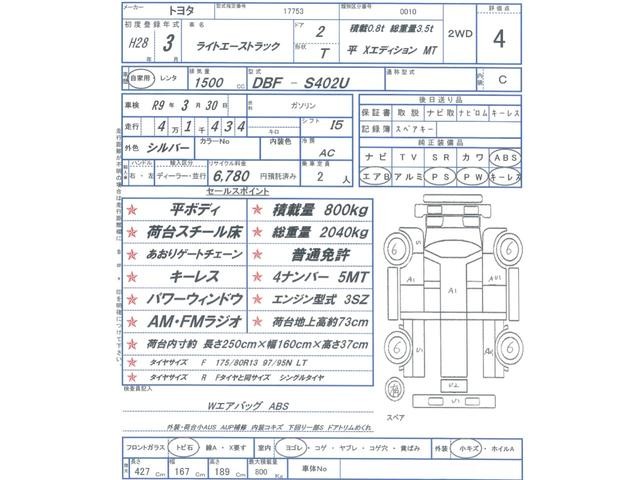 メーカー トヨタ 型式指定番号 17753 類別区分番号 0010 評価点
初度登録年式 車名 ドア 2 積載0.8t 総重量3.5t 2WD 4
H28年 3月 ライトエーストラック 形状 T 平 Xエディション MT
車歴 自家用・レンタ 排気量 1500 CC 型式 DBF - S402U 通称型式 内装 C
車検 R9年 3月 30日 燃料 ガソリン 後日送り品
保証書 取説 ナビ取 ナビロム キーレス
走行 4万 1千 4 3 4 キロ シフト I5 記録簿 スペアキー
外色 シルバー カラーNo 内装色 冷房 AC 純正装備品
ナビ TV SR カワ ABS
輸入車 ハンドル 右・左 輸入区分 ディーラー・並行 リサイクル料金 6,780 円預託済み 乗車定員 2人 エアB アルミ PS PW キーレス
セールスポイント
☆ 平ボディ ☆ 積載量 800kg
☆ 荷台スチール床 ☆ 総重量 2040kg
☆ あおりゲートチェーン ☆ 普通免許
☆ キーレス ☆ 4ナンバー 5MT
☆ パワーウィンドウ ☆ エンジン型式 3SZ
☆ AM・FMラジオ ☆ 荷台地上高約73cm
☆ 荷台内寸約 長さ250cm×幅160cm×高さ37cm
☆ タイヤサイズ F 175/80R13 97/95N LT
☆ タイヤサイズ R Fタイヤと同サイズ シングルタイヤ
検査員記入
Wエアバッグ ABS
外装・荷台小AUS AUP補修 内装コキズ 下回り一部S ドアトリムめくれ
6 6
A1 A1
6 6
S1 S
U2
スペア
フロントガラス トビ石・線A・X要す 室内 ヨゴレ・コゲ・ヤブレ・コゲ穴・黄ばみ 外装 小キズ・ホイルA
長さ 427 cm 幅 167 cm 高さ 189 cm 最大積載量 800 Kg 車体No